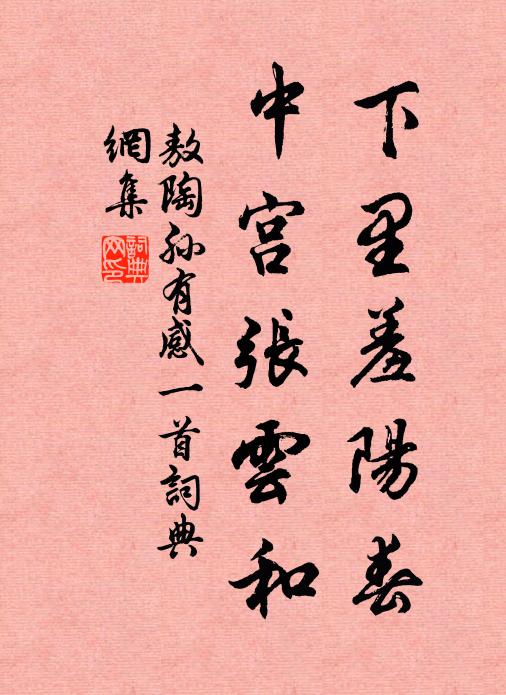 下里羞陽春
中宮張雲和
敖陶孙有感一首詞典
網集
詞典
网印